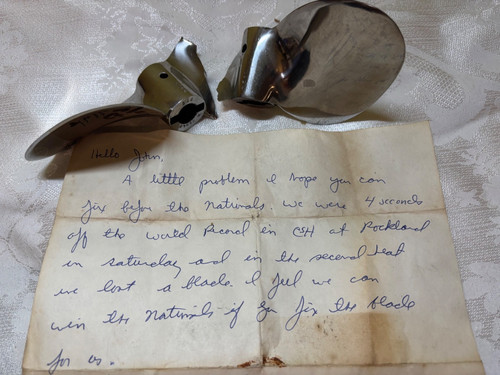 Hello John,
A little problem I hope you can
fix before the Nationals. We were 4 seconds
off the world Record in CSH at Rockland
in saturday and in the second heat
we lost a blade. I feel we can
win the Nationals if you fix the blade
for us.